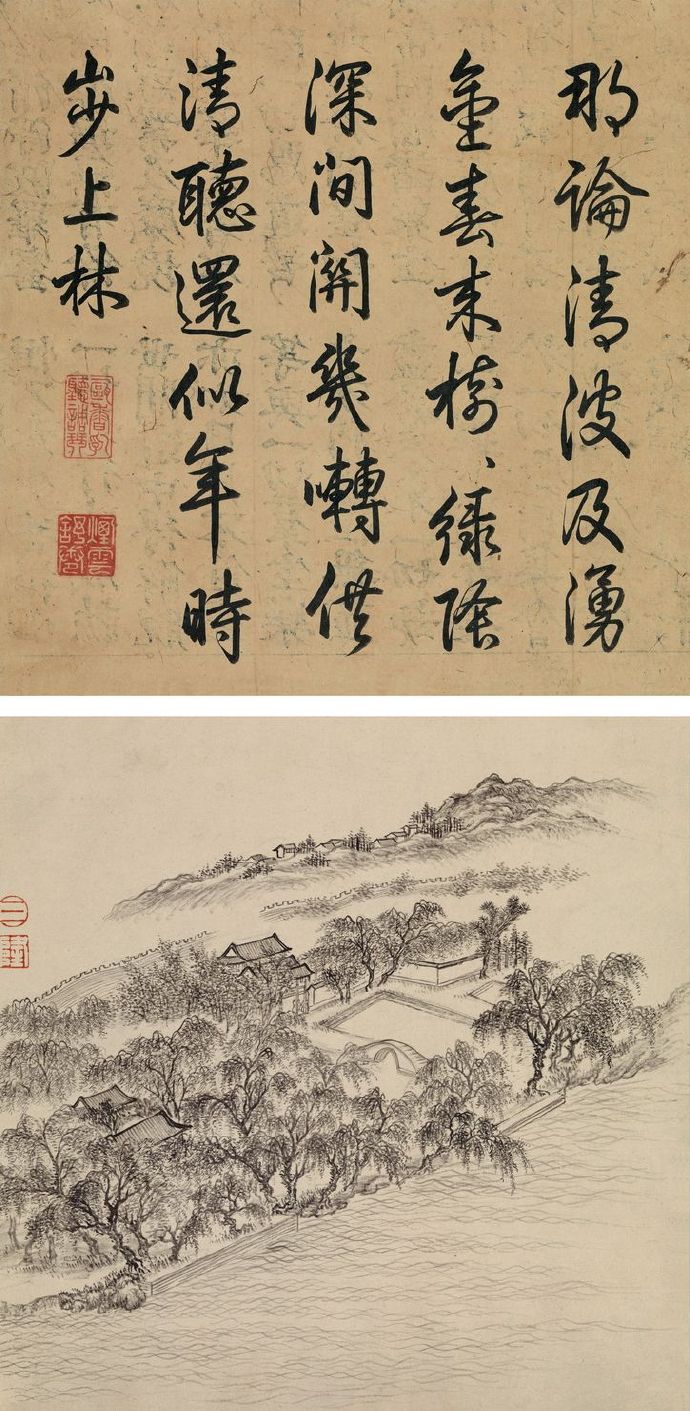 那論清波及湧
金春来樹〻綠陰
深間關幾囀供
清聽還似年時
步上林
煙雲
舒卷